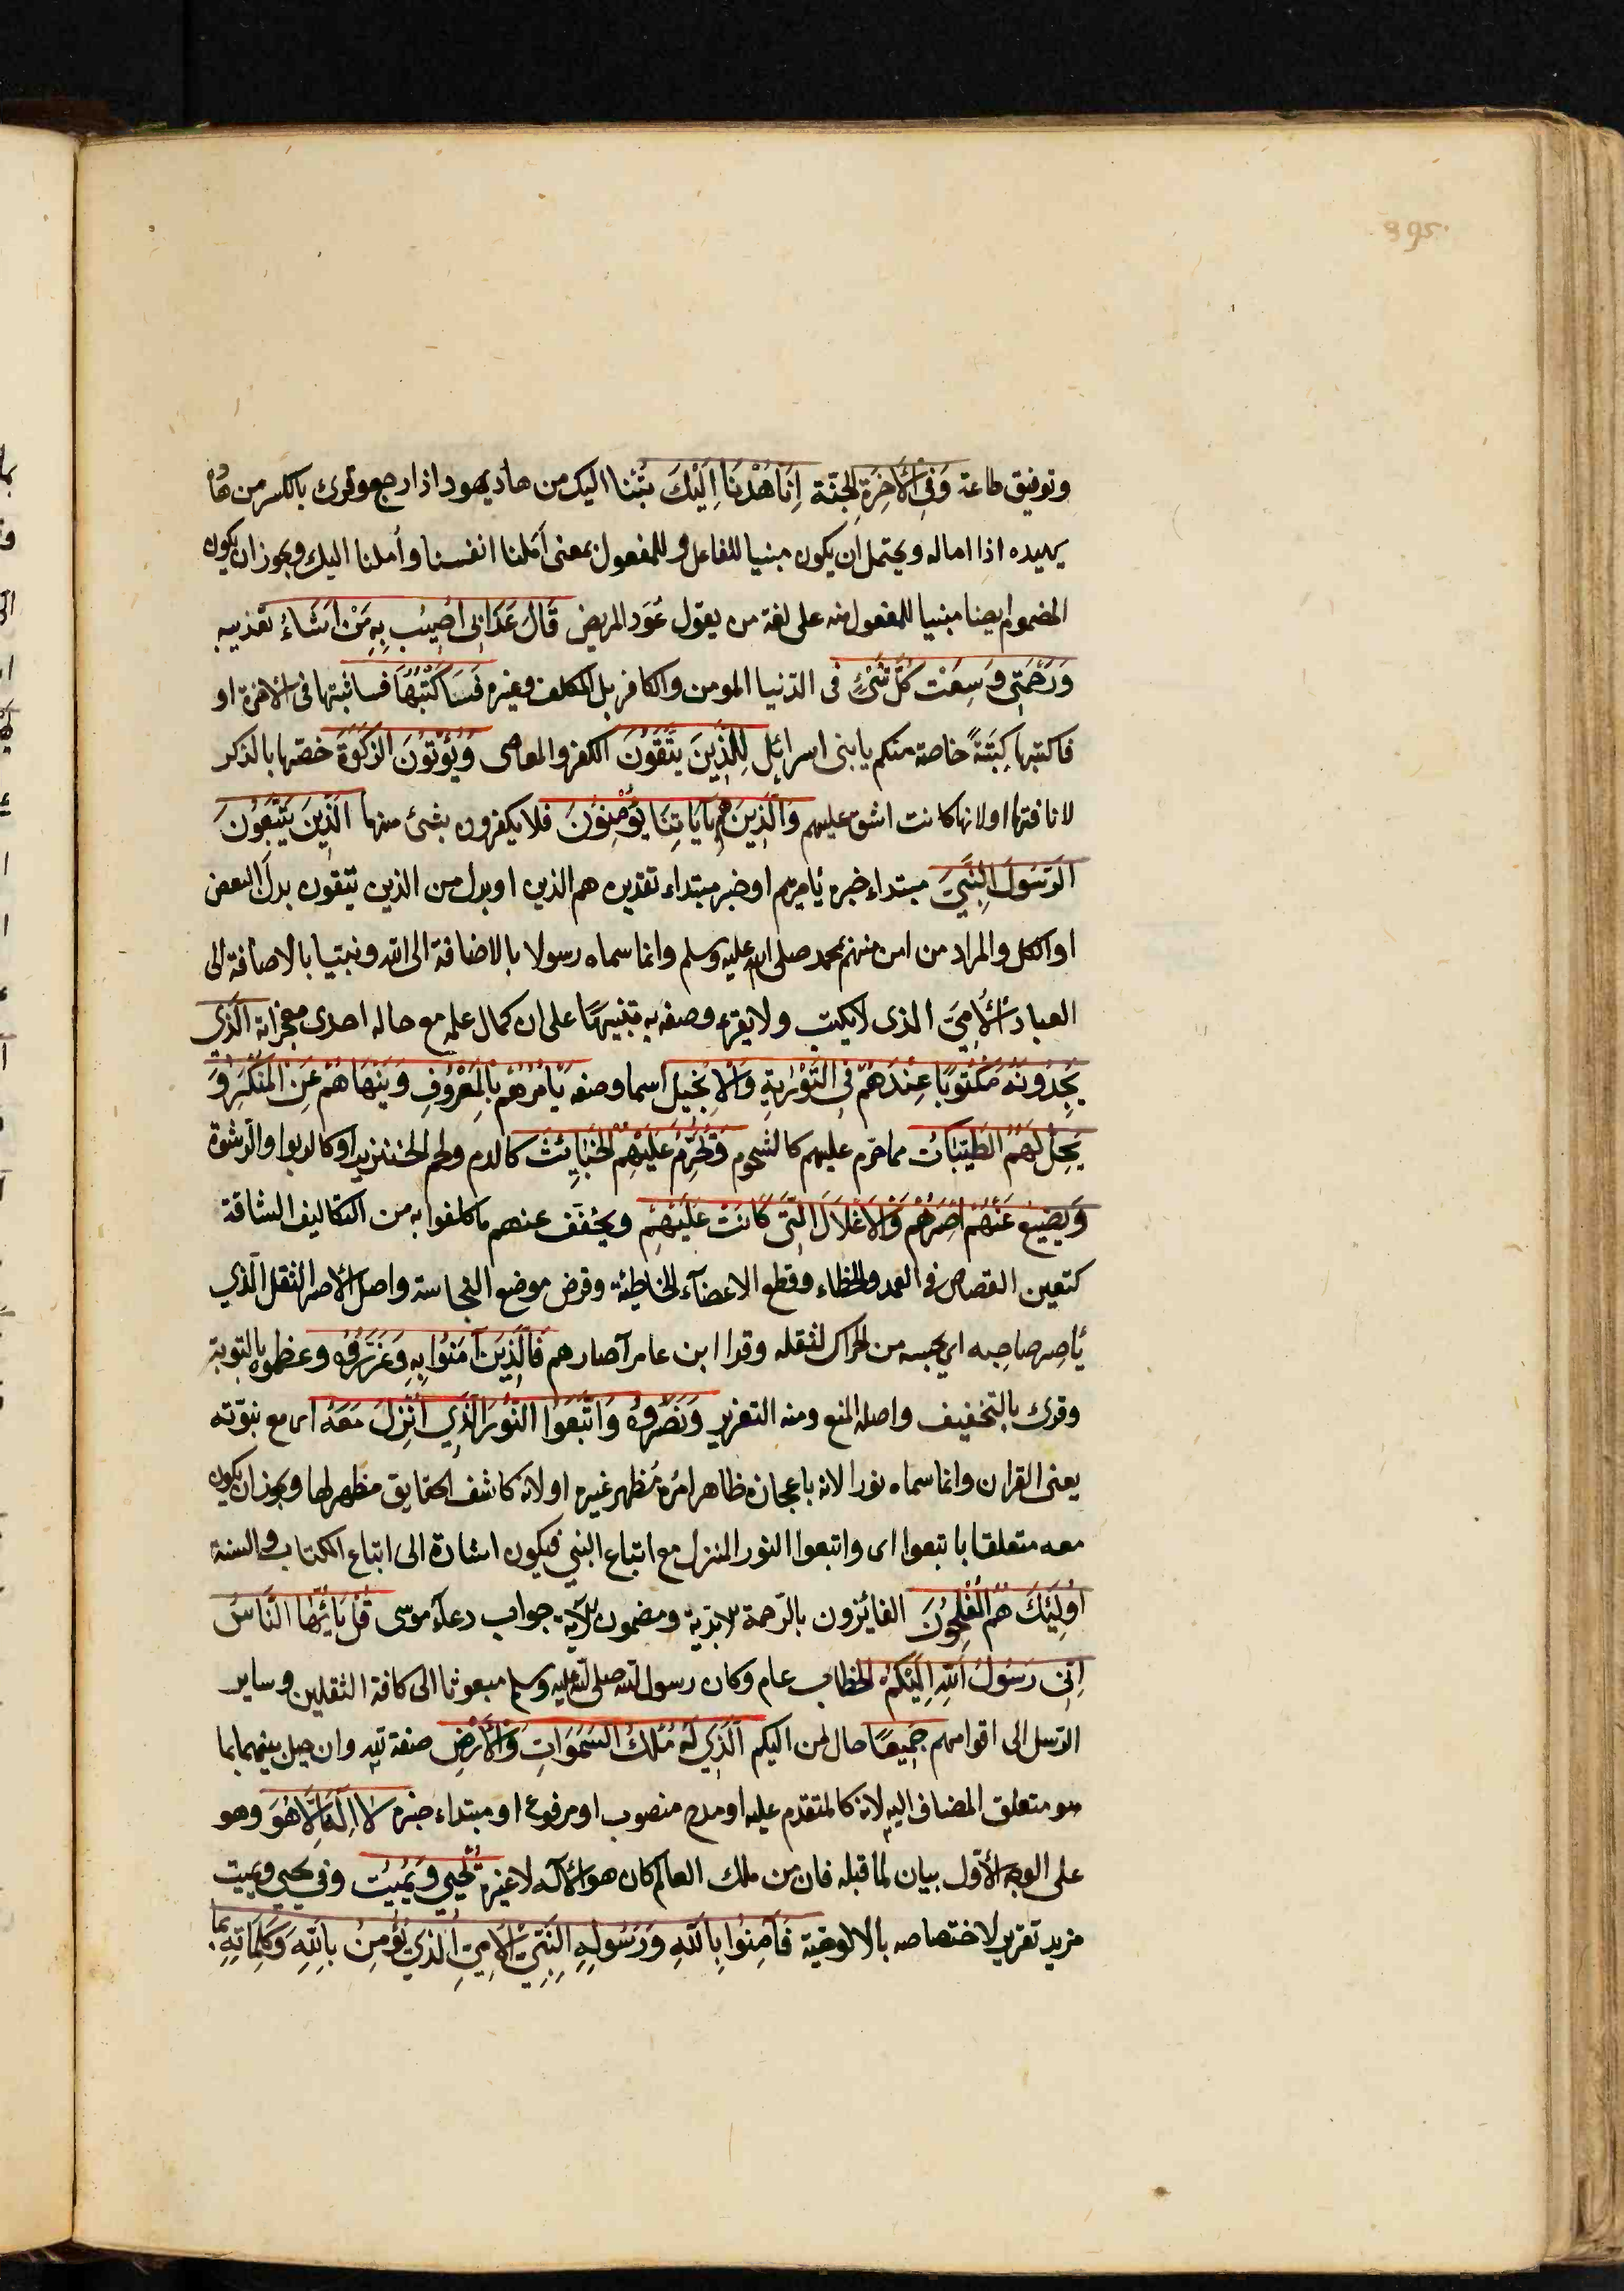 395
وتوفيق طاعة وَفِي الْآخِرَةِ الجنّة إِنَّا هُدْنَا إِلَيْكَ تُبْنا اليك من هاد يهود اذا رجع وقرئ بالكسر من هَاْ
يهيده اذا اماله ويحتمل ان يكون مبنيا للفاعل وللمفعول بمعنى اَمَلنا انفسنا وأُملنا اليك ويجوز ان يكون
المضموم ايضا مبنيا للمفعول منه على لغة من يقول عُوْد المريض قَالَ عَذَابِي أُصِيبُ بِهِ مَنْ أَشَاءُ تعذيبه
وَرَحْمَتِي وَسِعَتْ كُلَّ شَيْءٍ فى الدّنيا المومن والكافر بل المكلف وغيره فَسَأَكْتُبُهَا فسأثبتها فى الآخرة او
فاكتبها كِتبَةً خاصة منكم يا بنى اسرائيل لِلَّذِينَ يَتَّقُوْنَ الكفر والمعاصى وَيُؤْتُونَ الزَّكٰوةَ خصّها بالذكر
لانافتها او لانها كانت اشق عليهم وَالَّذِينَ هُمْ بِآيَاتِنَا يُؤْمِنُونَ فلا يكفرون بشئ منها الَّذِينَ يَتَّبِعُونَ
الرَّسُولَ النَّبِيَّ مبتداء خبره يأمرهم او خبر مبتداء تقديره هم الذين او بدل من الذين يتقون بدل البعض
او الكل والمراد من امن منهم بمحمد صلى الله عليه وسلم وانما سماه رسولا بالاضافة الى الله ونبيّا بالاضافة الى
العباد الْأُمِّيَّ الذى لا يكتب ولا يقرء وصفه به تنبيهًا على ان كمال علمه مع حاله احدى معجزاته الَّذِى
يَجِدُونَهُ مَكْتُوبًا عِنْدَهُمْ فِي التَّوْرٰيةِ وَالْإِنْجِيلِ اسما وصفه يَأْمُرُهُمْ بِالْمَعْرُوفِ وَيَنْهَاهُمْ عَنِ الْمُنْكَرِ وَ
يُحِلُّ لَهُمُ الطَّيِّبَاتُ مما حرّم عليهم كالشحوم وَيُحَرِّمُ عَلَيْهِمُ الْخَبَايِثَ كالدم ولحم الخنزير او كالربوا والرّشوة
وَيَضَعُ عَنْهُمْ إِصْرَهُمْ وَالْأَغْلَالَ الَّتِى كَانَتْ عَلَيْهِمْ ويخفّف عنهم ما كلفوا به من التكاليف الشاقة
كتعين القصاص فى العمد والخطاء وقطع الاعضاء الخاطئة وقرض موضع النجاسة واصل الاصر الثقل الّذي
يأصر صاحبه اى يحبسه من الحراك لثقله وقرا ابن عامر آصارهم فَالَّذِينَ آمَنُوا بِهِ وَعَزَّرُوهُ وعظموه بالتوبة
وقرئ بالتخفيف واصله المنع ومنه التعزير وَنَصَرُوهُ وَاتَّبَعُوا النُّورَ الَّذِي أُنْزِلَ مَعَهُ اى مع نبوّته
يعنى القران وانما سماه نورا لانه باعجازه ظاهر امرُه مُظهر غيره او لانه كاشف الحقايق مظهر لها ويجوز ان يكون
معه متعلقا باتبعوا اى واتبعوا النور المنزل مع اتباع النبي فيكون اشارة الى اتباع الكتاب والسنة
أُولٰئِكَ هُمُ الْمُفْلِحُونَ الفائزون بالرّحمة الابديّة ومضمون الآية جواب دعاء موسى قُلْ يَا أَيُّهَا النَّاسُ
إِنِّى رَسُولُ اللَّهِ إِلَيْكُمْ الخطاب عام وكان رسول الله صلى الله عليه وسلم مبعوثا الى كافة الثقلين وساير
الرّسل الى اقوامهم جَمِيعًا حال من اليكم الَّذِي لَهُ مُلْكُ السَّمٰوَاتِ وَالْأَرْضِ صفة لله وان حيل بينهما بما
هو متعلق المضاف اليه لانه كالمتقدم عليه او مدح منصوب او مرفوع او مبتداء خبره لَا إِلَهَ إِلَّا هُوَ وهو
على الوجه الاوّل بيان لما قبله فان من ملك العالم كان هو الاله لا غيره يُحْيِي وَيُمِيتُ وفي يحيى ويميت
مزيد تقرير لاختصاصه بالالوهية فَآمِنُوا بِاللَّهِ وَرَسُولِهِ النَّبِيِّ الْأُمِّيِّ الَّذِي يُؤْمِنُ بِاللَّهِ وَكَلِمَاتِهِ بما